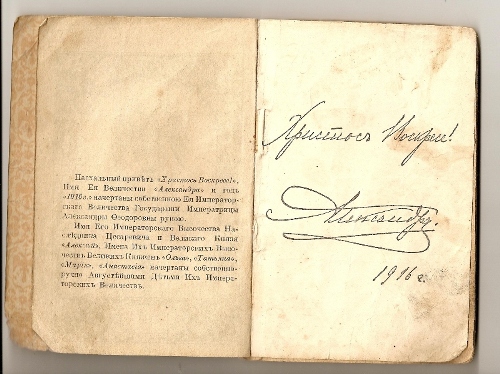 Пасхальный привѣтъ «Христосъ Воскресе!»,
Имя Ея Величества «Александра» и годъ
«1916 г.» начертаны собственною Ея Император-
скаго Величества Государыни Императрицы
Александры Ѳеодоровны рукою.
Имя Его Императорскаго Высочества На-
слѣдника Цесаревича и Великаго Князя
«Алексѣй», Имена Ихъ Императорскихъ Высо-
чествъ Великихъ Княженъ «Ольга», «Татьяна»,
«Марія», «Анастасія» начертаны собственно-
ручно Августѣйшими Дѣтьми Ихъ Импера-
торскихъ Величествъ.
Христосъ Воскресе!
Александра.
1916 г.